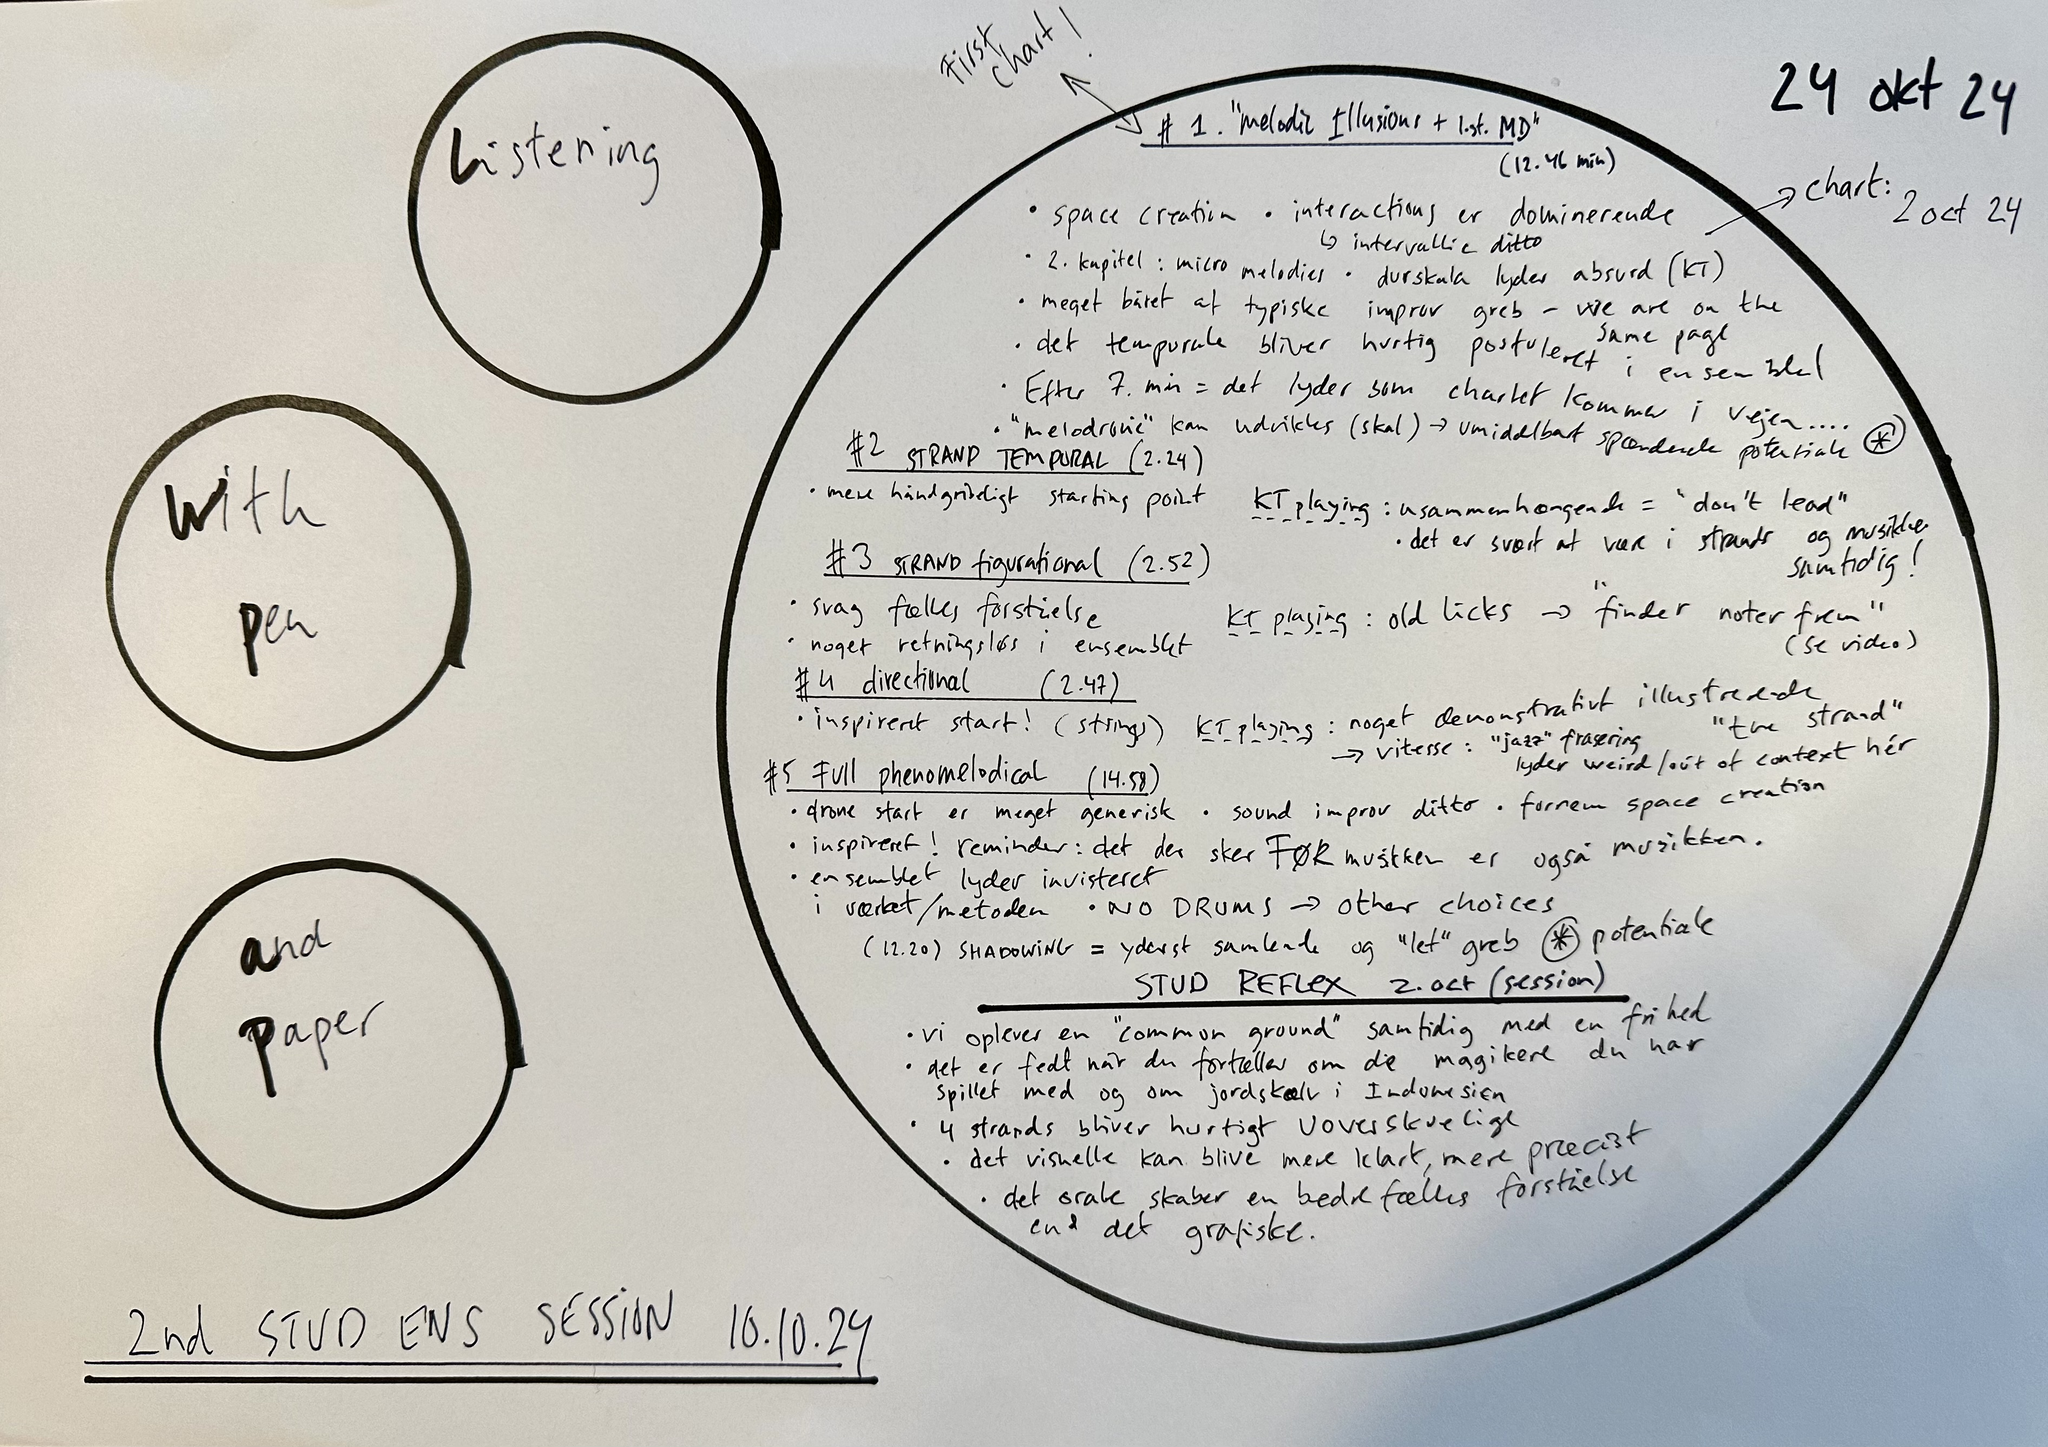 First
chart!
24 okt 24
Listening
with
pen
and
paper
2nd STUD ENS SESSION 10.10.24
# 1. "melodic Illusions + l.st. MD"
(12.46 min)
→ chart:
2 oct 24
• space creation • interactions er dominerende
↳ intervallic ditto
• 2. kapitel : micro melodies • durskala lyder absurd (KT)
• meget båret af typiske improv greb – we are on the
same page
• det temporale bliver hurtig postuleret i ensemblet
• Efter 7. min = det lyder som chartet kommer i vejen....
• "melodronic" kan udvikles (skal) → umiddelbart spændende potentiale ⊛
#2 STRAND TEMPORAL (2.24)
• mere håndgribeligt starting point
KT playing : usammenhængende = "don't lead"
• det er svært at være i strands og musikken
samtidig!
#3 STRAND figurational (2.52)
• svag fælles forståelse
• noget retningsløs i ensemblet
KT playing : old licks → "finder noter frem"
(se video)
#4 directional (2.47)
• inspireret start! (strings)
KT playing : noget demonstrativt illustrerende
"the strand"
→ vitesse : "jazz" frasering
lyder weird/out of context hér
#5 Full phenomelodical (14.58)
• drone start er meget generisk • sound improv ditto • fornem space creation
• inspireret! reminder: det der sker FØR musikken er også musikken.
• ensemblet lyder investeret
i værket/metoden • NO DRUMS → other choices
(12.20) SHADOWING = yderst samlende og "let" greb ⊛ potentiale
STUD REFLEX 2. oct (session)
• vi oplever en "common ground" samtidig med en frihed
• det er fedt når du fortæller om de magikere du har
spillet med og om jordskælv i Indonesien
• 4 strands bliver hurtigt uoverskuelige
• det visuelle kan blive mere klart, mere præcist
• det orale skaber en bedre fælles forståelse
end det grafiske.